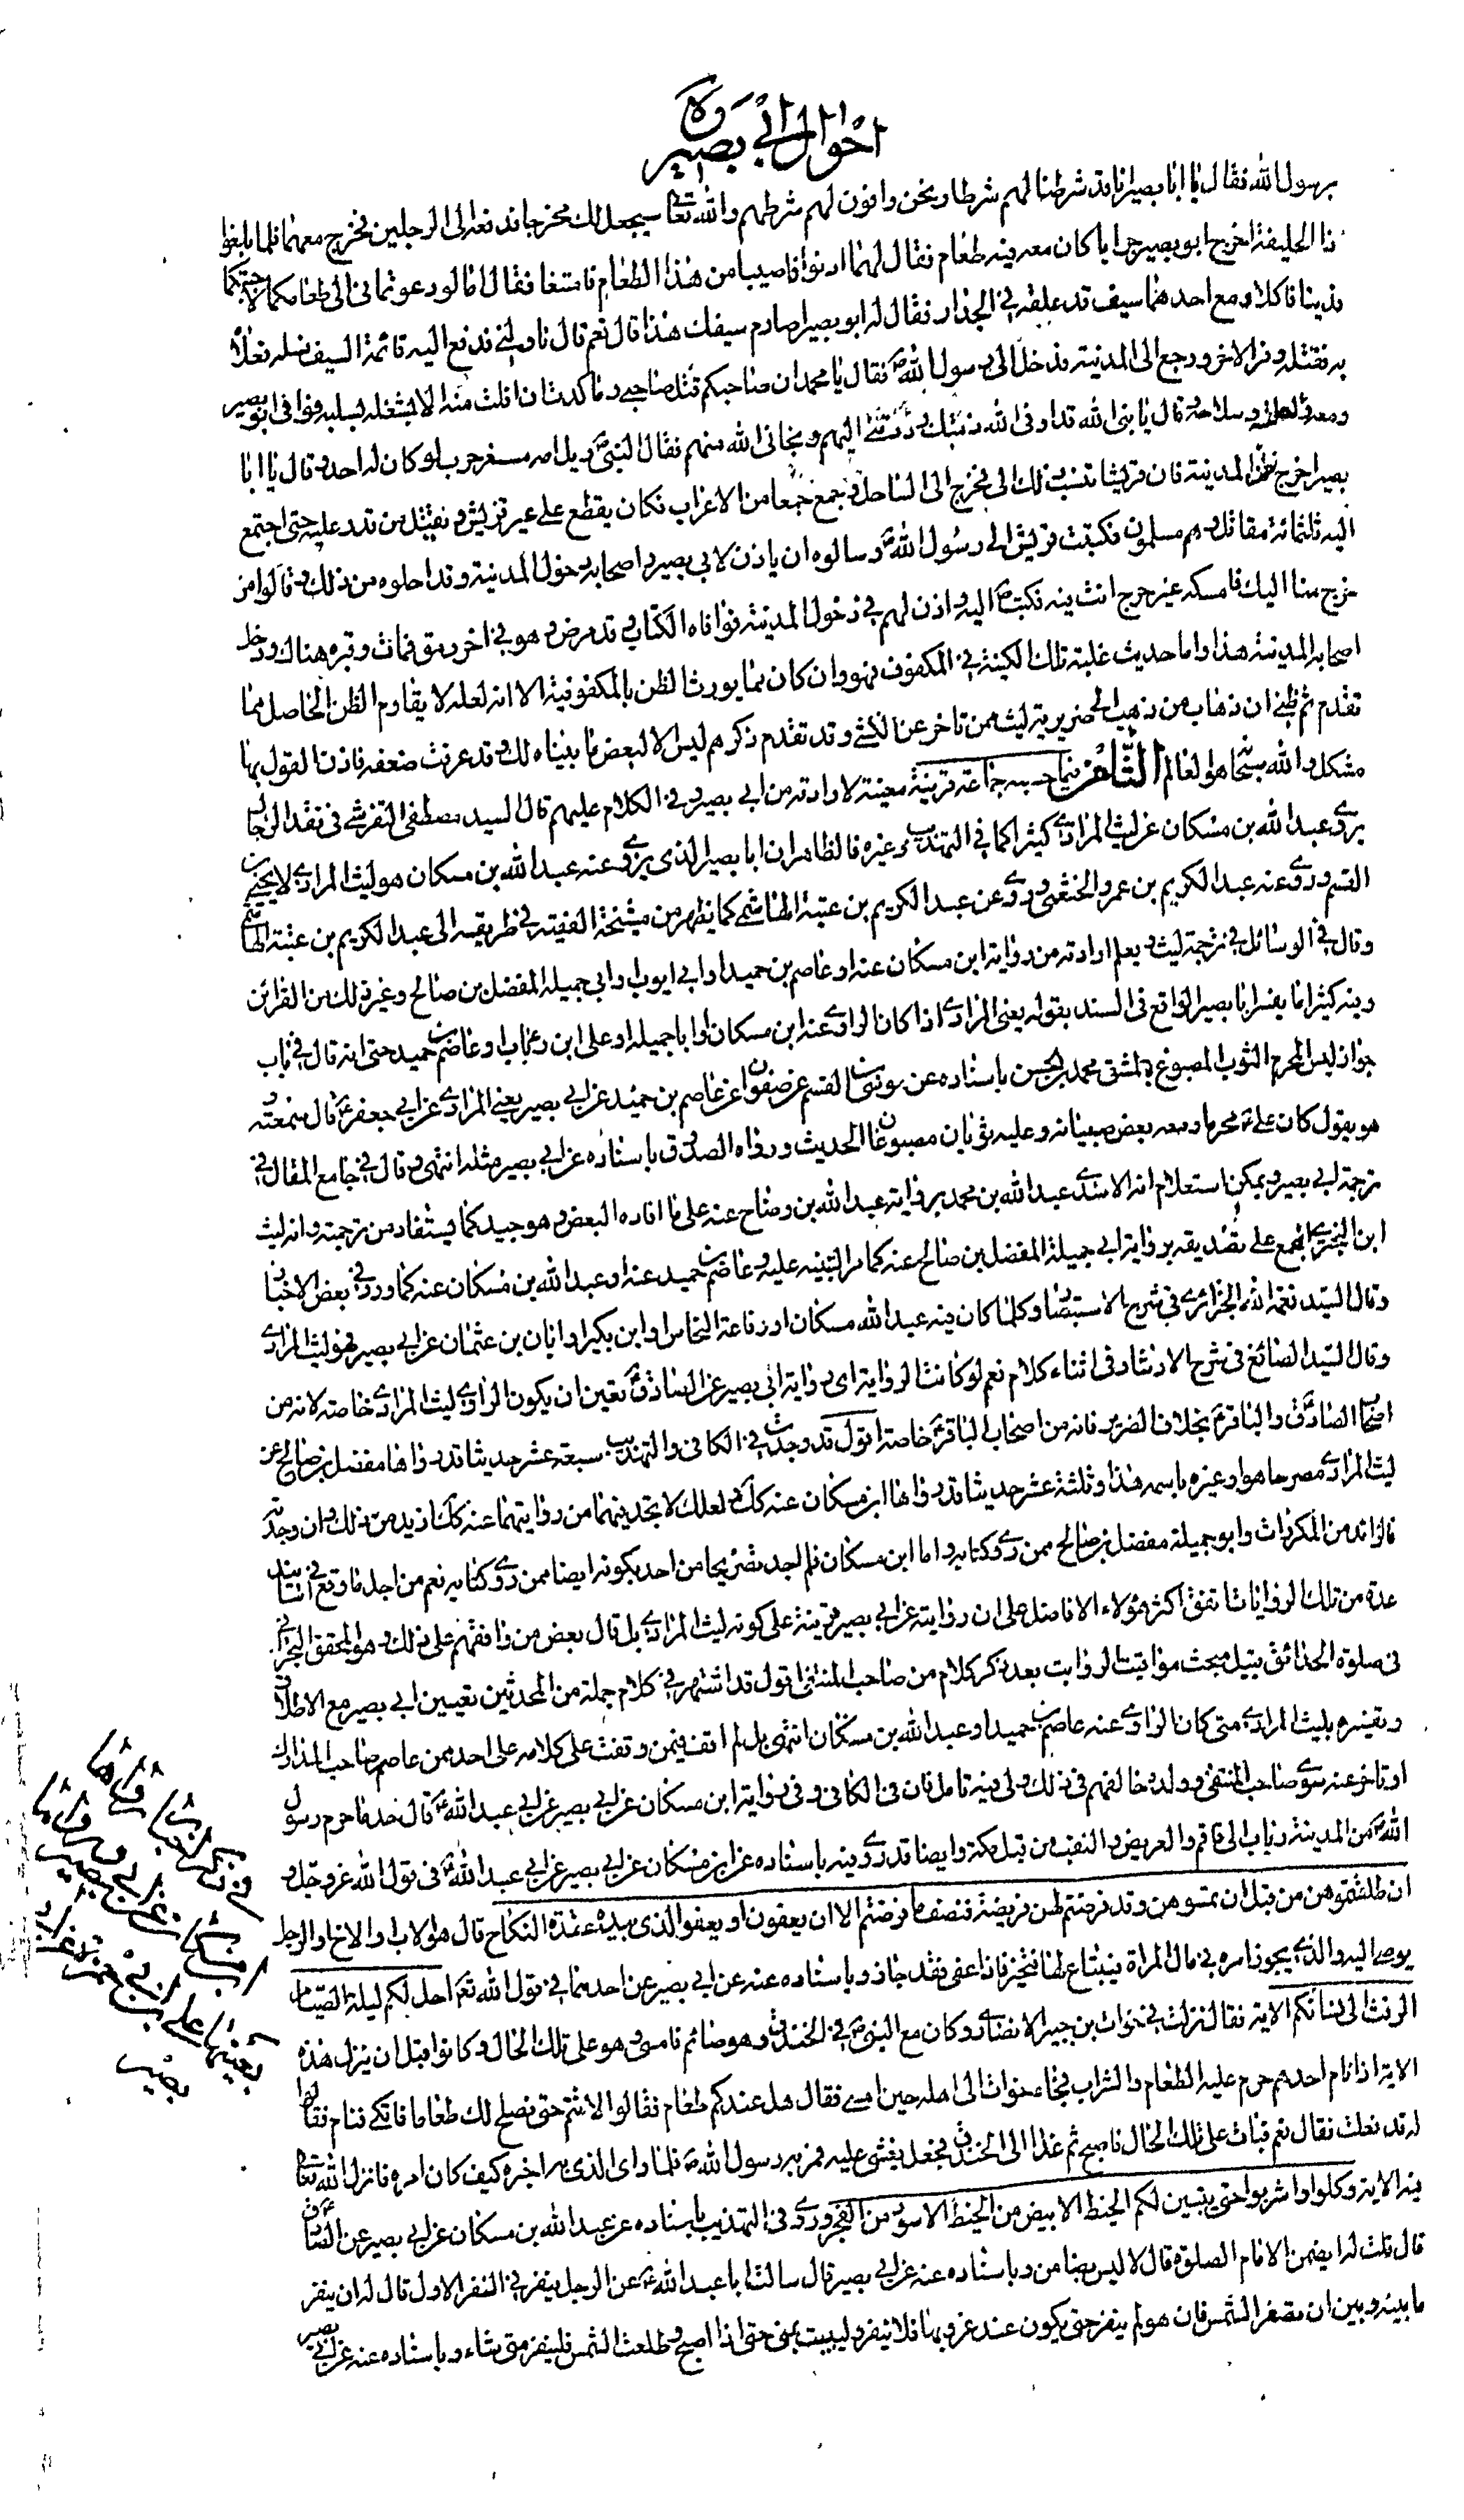 احوال ابي بصير
برسول الله فقال يا ابا بصير انا قد شرطنا لهم شرطا ونحن وافون لهم بشرطهم والله تعالى سيجعل لك مخرجا فدفعه الى الرجلين فخرج معهما فلما بلغوا
ذا الحليفة اخرج ابو بصير جرابا كان معه فيه طعام فقال لهما ادنوا فاصيبا من هذا الطعام فامتنعا فقال اما لو دعوتماني الى طعامكما لاجبتكما
فدينا فاكلا ومع احدهما سيف قد علقه في الجدار فقال له ابو بصير اصارم سيفك هذا قال نعم قال ناولنيه فدفع اليه قائمة السيف فسله فعلاه
به فقتله وفر الاخر ورجع الى المدينة فدخل الى رسول الله ص فقال يا محمد ان صاحبكم قتل صاحبي وما كدت ان افلت منه الا بشغله بسلبه فوافى ابو بصير
ومعه وسلاحه قال يا نبي الله قد اوفى الله ذمتك ورددتني اليهم ونجاني الله منهم فقال النبي ص ويل امه مسعر حرب لو كان له احد وقال يا ابا
بصير اخرج من المدينة فان قريشا تنسب ذلك الي فخرج الى الساحل وجمع جمعا من الاعراب فكان يقطع على عير قريش ويقتل من قدر عليه حتى اجتمع
اليه ثلثمائة مقاتل وهم مسلمون فكتبت قريش الى رسول الله ص وسالوه ان ياذن لابي بصير واصحابه دخول المدينة وقد احلوه من ذلك وقالوا من
خرج منا اليك فامسكه غير حرج انت فيه فكتب ص اليه واذن لهم في دخول المدينة فوافاه الكتاب وقد مرض وهو في اخر رمق فمات وقبره هناك ودخل
اصحابه المدينة هذا واما حديث غلبة تلك الكنية في المكفوف فهو وان كان مما يورث الظن بالمكفوفية الا انه لعله لا يقاوم الظن الحاصل مما
تقدم ثم ظني ان ذهاب من ذهب الى ضريرية ليث ممن تاخر عن الكشي وقد تقدم ذكرهم ليس الا لبعض ما بيناه لك وقد عرفت ضعفه فاذن القول بها
مشكل والله سبحانه هو العالم الثامن فيما حسبه جماعة قرينة معينة لارادته من ابي بصير وفي الكلام عليهم قال السيد مصطفى التفرشي في نقد الرجال
يروي عبد الله بن مسكان عن ليث المرادي كثيرا كما في التهذيب وغيره فالظاهر ان ابا بصير الذي يروي عنه عبد الله بن مسكان هو ليث المرادي لا يحيى بن
القسم وروى عنه عبد الكريم بن عمرو الخثعمي وروى عن عبد الكريم بن عتبة الهاشمي كما يظهر من مشيخة الفقيه في طريقه الى عبد الكريم بن عتبة الهاشمي
وقال في الوسائل في ترجمة ليث ويعلم ارادته من رواية ابن مسكان عنه او عاصم بن حميد او ابي ايوب او ابي جميلة المفضل بن صالح وغير ذلك من القرائن
وفيه كثيرا ما يفسر ابا بصير الواقع في السند بقوله يعني المرادي اذا كان الراوي عنه ابن مسكان او ابا جميلة او علي ابن رئاب او عاصم بن حميد حتى انه قال في باب
جواز لبس المحرم الثوب المصبوغ بالمشق محمد بن الحسن باسناده عن موسى بن القسم عن صفوان عن عاصم بن حميد عن ابي بصير يعني المرادي عن ابي جعفر ع قال سمعته
وهو يقول كان علي ع محرما ومعه بعض صبيانه وعليه ثوبان مصبوغان الحديث ورواه الصدوق باسناده عن ابي بصير مثله انتهى وقال في جامع المقال في
ترجمة ابي بصير ويمكن استعلام انه الاسدي عبد الله بن محمد برواية عبد الله بن وضاح عنه على ما افاده البعض وهو جيد كما يستفاد من ترجمته وانه ليث
ابن البختري المجمع على تصديقه برواية ابي جميلة المفضل بن صالح عنه كما مر التنبيه عليه وعاصم بن حميد عنه او عبد الله بن مسكان عنه كما ورد في بعض الاخبار
وقال السيد نعمة الله الجزائري في شرح الاستبصار وكلما كان فيه عبد الله مسكان او رفاعة النخاس او ابن بكير او ابان بن عثمان عن ابي بصير فهو ليث المرادي
وقال السيد الصائغ في شرح الارشاد في اثناء كلام نعم لو كانت الرواية اي رواية ابي بصير عن الصادق ع تعين ان يكون الراوي ليث المرادي خاصة لانه من
اصحاب الصادق والباقر ع بخلاف الضرير فانه من اصحاب الباقر ع خاصة اقول قد وجدت في الكافي والتهذيب سبعة عشر حديثا قد رواها مفضل بن صالح عن
ليث المرادي مصرحا هو او غيره باسمه هذا وثلثة عشر حديثا قد رواها ابن مسكان عنه كك ولعلك لا تجد فيهما من روايتهما عنه كك ازيد من ذلك وان وجدته
فالزائد من المكررات وابو جميلة مفضل بن صالح ممن روى كتابه واما ابن مسكان فلم اجد تصريحا من احد بكونه ايضا ممن روى كتابه نعم من اجل ما وقع في اسانيد
عدة من تلك الروايات اتفق اكثر هؤلاء الافاضل على ان روايته عن ابي بصير قرينة على كونه ليث المرادي بل قال بعض من وافقهم على ذلك وهو المحقق البحراني
في صلوة الحدائق قبيل مبحث مواقيت الرواتب بعد ذكر كلام من صاحب المنتقى اقول قد اشتهر في كلام جملة من المحدثين تعيين ابي بصير مع الاطلاق
وتفسيره بليث المرادي متى كان الراوي عنه عاصم بن حميد او عبد الله بن مسكان انتهى بل لم اقف فيمن وقفت على كلامه على احد ممن عاصر صاحب المدارك
او تاخر عنه سوى صاحب المنتقى وولده خالفهم في ذلك ولي فيه تامل فان في الكافي وفي رواية ابن مسكان عن ابي بصير عن ابي عبد الله ع قال حد ما حرم رسول
الله ص من المدينة من ذباب الى فاقم والعريض والنقب من قبل مكة وايضا قد روى فيه باسناده عن ابن مسكان عن ابي بصير عن ابي عبد الله ع في قول الله عز وجل و
ان طلقتموهن من قبل ان تمسوهن وقد فرضتم لهن فريضة فنصف ما فرضتم الا ان يعفون او يعفو الذي بيده عقدة النكاح قال هو الاب والاخ والرجل
يوصى اليه والذي يجوز امره في مال المراة فيبتاع لها فتجيز فاذا عفى فقد جاز وباسناده عنه عن ابي بصير عن احدهما في قول الله تع احل لكم ليلة الصيام
الرفث الى نسائكم الاية فقال نزلت في خوات بن جبير الانصاري وكان مع النبي ص في الخندق وهو صائم فامسى وهو على تلك الحال وكانوا قبل ان ينزل هذه
الاية اذا نام احدهم حرم عليه الطعام والشراب فجاء خوات الى اهله حين امسى فقال هل عندكم طعام فقالوا لا تنم حتى نصلح لك طعاما فاتكى فنام فقالوا
له قد فعلت فقال نعم فبات على تلك الحال فاصبح ثم غدا الى الخندق فجعل يغشى عليه فمر به رسول الله ص فلما راى الذي به اخبره كيف كان امره فانزل الله تعالى
فيه الاية وكلوا واشربوا حتى يتبين لكم الخيط الابيض من الخيط الاسود من الفجر وروى في التهذيب باسناده عن عبد الله بن مسكان عن ابي بصير عن الصادق ع
قال قلت له ايضمن الامام الصلوة قال لا ليس بضامن وباسناده عنه عن ابي بصير قال سالت ابا عبد الله ع عن الرجل ينفر في النفر الاول قال له ان ينفر
ما بينه وبين ان تصفر الشمس فان هو لم ينفر حتى يكون عند غروبها فلا ينفر وليبيت بمنى حتى اذا اصبح وطلعت الشمس فلينفر متى شاء وباسناده عنه عن ابي بصير